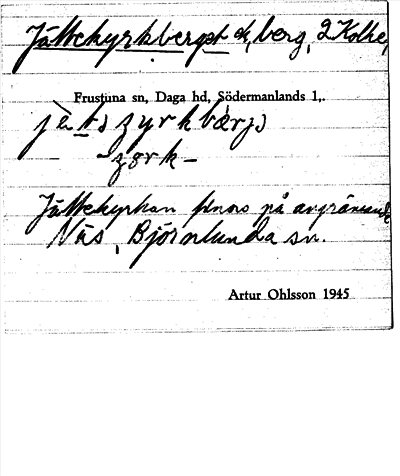 Jättekyrkberget ek, berg, 2 Kolke,
Frustuna sn, Daga hd, Södermanlands l,.
Jättekyrkan finns på angränsande
Näs, Björnlunda sn.
Artur Ohlsson 1945